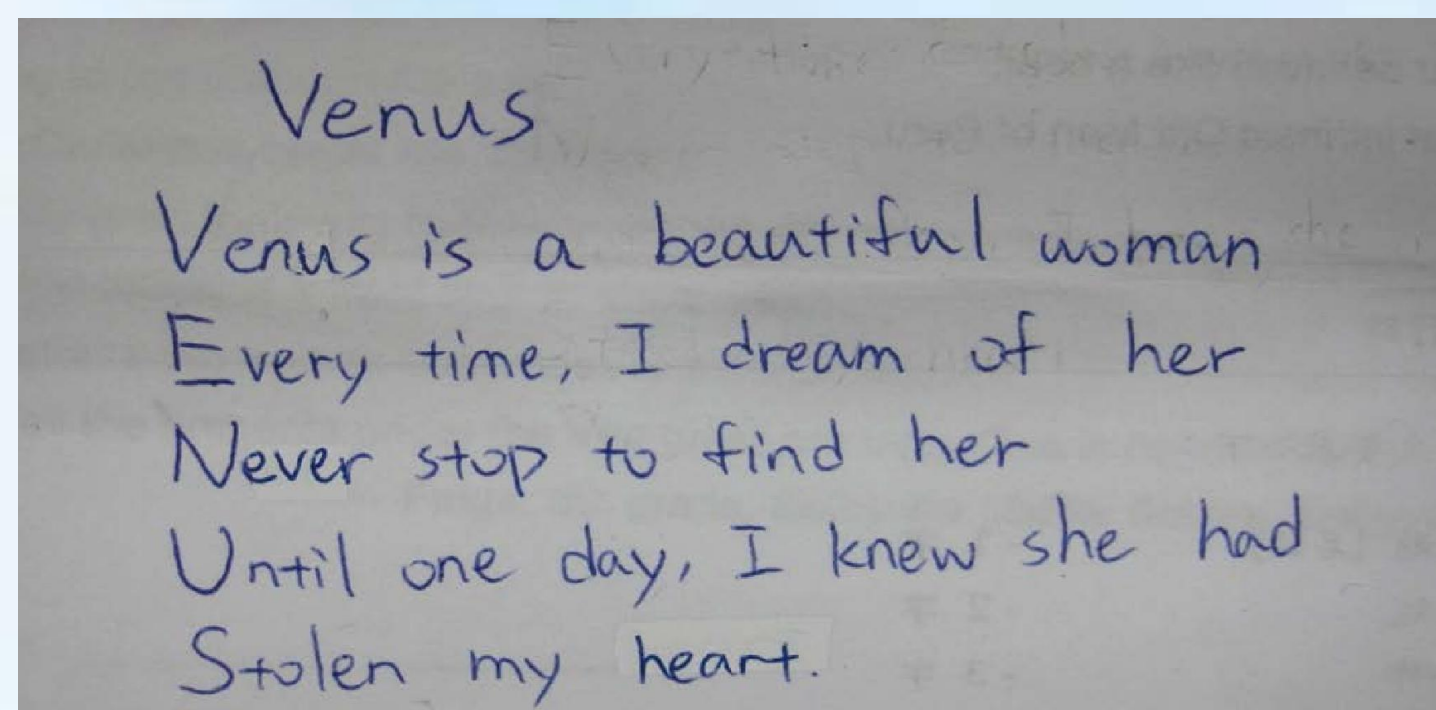 Venus
Venus is a beautiful woman
Every time, I dream of her
Never stop to find her
Until one day, I knew she had
Stolen my heart.